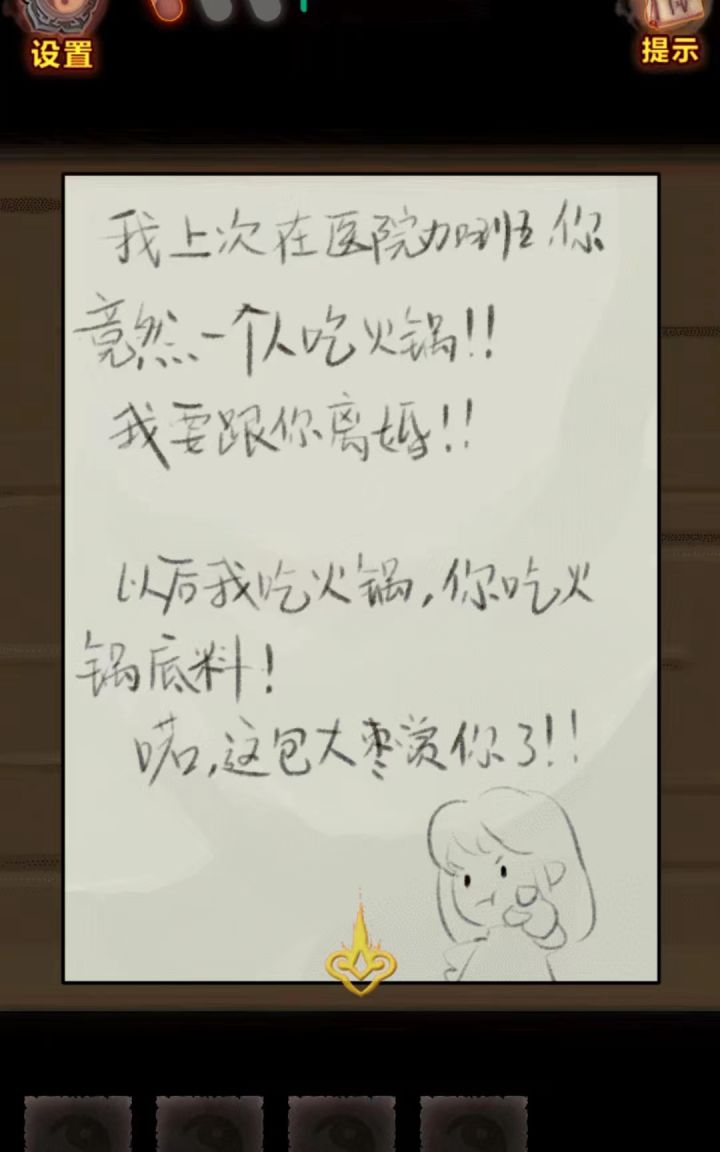 设置
提示
我上次在医院加班,你
竟然一个人吃火锅!!
我要跟你离婚!!
以后我吃火锅,你吃火
锅底料!
喏,这包大枣赏你了!!